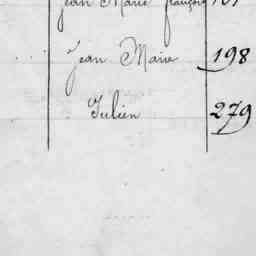 Jean Marie françois
Jean Marie 198
Julien 279